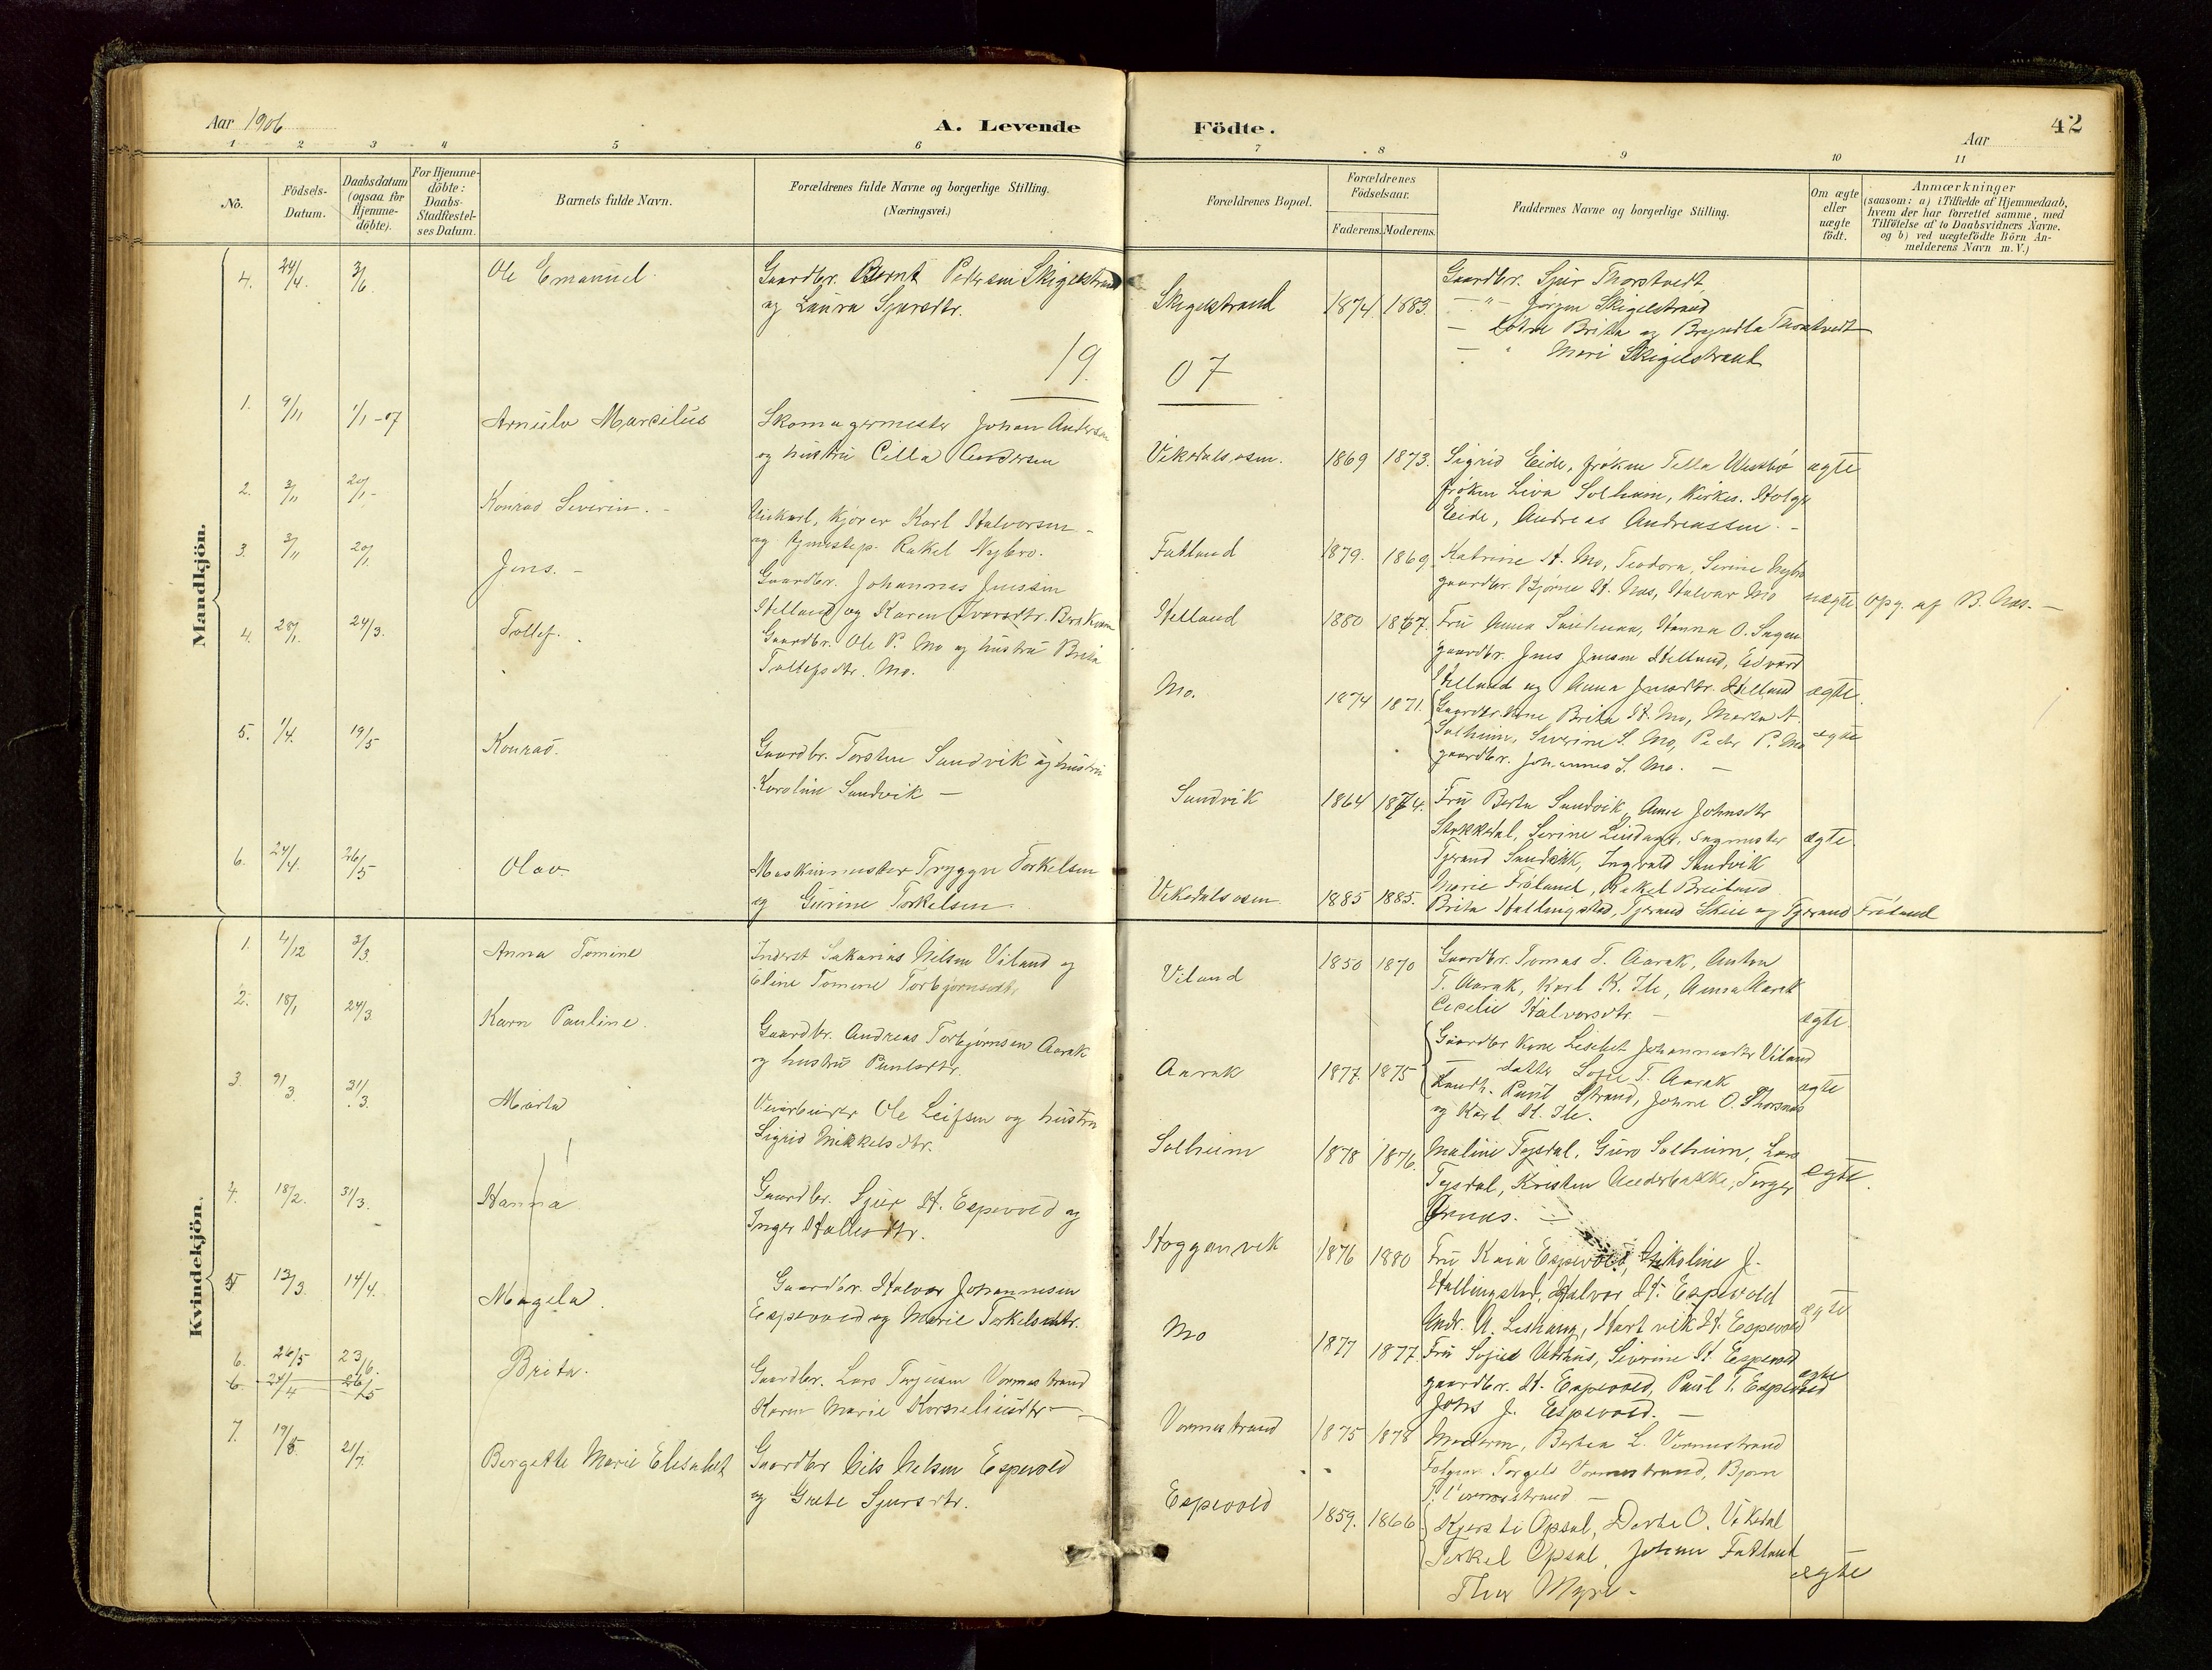 Aar 1906
A. Levende
Födte.
Aar
42
1 2 3 4 5 6 7 8 9 10 11
No.
Födsels-Datum.
Daabsdatum (ogsaa for Hjemme-döbte).
For Hjemme-döbte: Daabs-Stadfæstel-ses Datum.
Barnets fulde Navn.
Forældrenes fulde Navne og borgerlige Stilling.
(Næringsvei.)
Forældrenes Bopæl.
Forældrenes Födselsaar.
Faderens. Moderens.
Faddernes Navne og borgerlige Stilling.
Om ægte eller uægte födt.
Anmærkninger
(saasom: a) i Tilfælde af Hjemmedaab, hvem der har forrettet samme, med Tilföielse af to Daabsvidners Navne, og b) ved uægtefödte Börn Anmelderens Navn m. V.)
Mandkjön.
4. 24/4. 3/6. Ole Emanuel. Gaardbr. Bernt Pedersen Skigelstrand
og Laura Sjursdtr.
Skigelstrand 1874 1883.
Gaardbr. Sjur Thorstvedt,
— " — Jørgen Skigelstrand
— Brita og Bryndla Thorstvedt
— " Mari Skigelstrand
19 07
1. 9/11 1/1-07 Arnulv Marcelius Skomagermester Johan Andersen
og hustru Cilla Andersen
Vikedalsosen. 1869 1873. Sigrid Eide, frøken Tella
frøken Liva Solheim, Kirkes. Holger
Eide, Andreas Andreassen. —
ægte
2. 3/11 20/1 - Konrad Severin. - Karl Halvorsen -
og Rakel Nybro.
Fatland 1879. 1869. Katrine H. Mo, Teodora, Serine Nybro
gaardbr. Bjørne H. Næs, Halvar Mo
uægte opg. af B. Næs. —
3. 3/11 20/1. Jens. - Gaardbr. Johannes Jenssen
Helland og Karen Ivarsdtr.
Helland 1880 1867. Fru Anna Sandman, Hanna O.
gaardbr. Jens Jensen Helland, Edvard
Helland og Anna Jensdtr. Helland
ægte.
4. 28/1. 24/3. Tollef. Gaardbr. Ole P. Mo og hustru Brita
Tollefsdtr. Mo.
Mo. 1874 1871. Gaardbr. Kone Brita H. Mo, Marta A.
Solheim, Severine S. Mo, Peder P. Mo
gaardbr. Johannes S. Mo. —
ægte
5. 1/4. 19/5 Konrad. Gaardbr. Torsten Sandvik og hustru
Karoline Sandvik —
Sandvik 1864 1874. Fru Berta Sandvik, Anne Johnsdtr
Stokkdal, Serine
Tjerand Sandvik, Ingvald Sandvik
ægte.
6. 24/4. 26/5 Olav. Maskinmester Tryggve Torkelsen
og Gurine Torkelsen.
Vikedalsosen. 1885 1885. Marie Frøland, Rakel Breiland
Brita Hallingstad, Tjerand Skiie og Tjerand Frøland
Kvindekjön.
1. 4/12 3/3. Anna Tomine Inderst Sakarias Nilsen Viland og
Eline Tomine Torbjørnsdtr
Viland 1850 1870 Gaardbr. Tomas T. Aarak, Anton
T. Aarak, Karl K. Ile, Anna Aarak
Cecilie Halvorsdtr. —
ægte.
2. 18/1 24/3. Karn Pauline. Gaardbr. Andreas Torbjørnsen Aarak
og hustru Paulsdtr.
Aarak 1877. 1875 Gaardbr Kone Lisebet Johannesdtr Viland
datter Sofie T. Aarak
Landh. Paul Strand, Johne O. Thorsnes
og Karl H. Ile.
ægte
3. 9/3. 31/3. Marta Veiarbeider Ole Leifsen og hustru
Sigrid Mikkelsdtr.
Solheim 1878 1876. Maline Tysdal, Guro Solheim, Lars
Tysdal, Kristen Nederbakke, Torger
ægte.
4. 18/2. 31/3. Hanna Gaardbr. Sjur H. Espevold og
Inger Hallesdtr.
Hogganvik 1876 1880 Fru Kaia Espevold, Gjikoline J.
Hallingstad, Halvor H. Espevold
Andr. A. Leshang, Hartvik H. Espevold
ægte
5 13/3. 14/4. Magela. Gaardbr. Halvor Johannesen
Espevold og Marie Torkelsdtr.
Mo 1877 1877. Fru Sofie Vethus, Severine H. Espevold
gaardbr. H. Espevold, Paul T. Espevold
Johs J. Espevold. —
ægte
6. 26/5 23/6. Brita. Gaardbr. Lars Torjusen Vormestrand
6 24/4 26/5 Karen Marie Korneliusdtr —
Vormestrand 1875 1878 Moderen, Bertea L. Vormestrand
Torgels Vormestrand, Bjørn
Vormestrand —
7. 19/5. 21/7. Bergitte Marie Elisabet Gaardbr Nils Nelsen Espevold
og Grete Sjursdtr.
Espevold 1859. 1866 Kjersti Opsal, Dorte O. Vikedal
Torkel Opsal, Johan Fatland
Thor Myre.
ægte